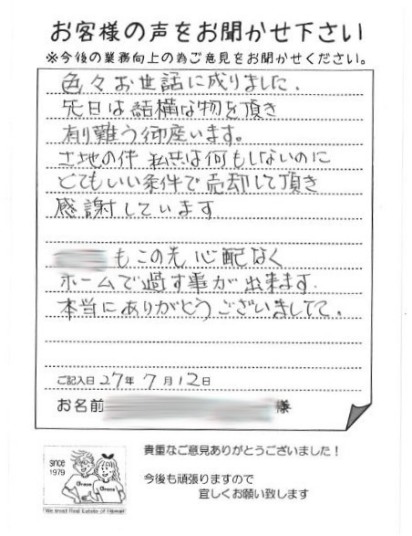 お客様の声をお聞かせ下さい
※今後の業務向上の為ご意見をお聞かせください。
色々お世話に成りました.
先日は話構な物を頂き
有難う御座います。
土地の件 私共は何もしないのに
とてもいい条件で売却して頂き
感謝しています
もこの先 心配なく
ホームで過す事が出来ます.
本当にありがとうございました。
ご記入日 27年 7月 12日
お名前 様
since
1979
貴重なご意見ありがとうございました！
今後も頑張りますので
宜しくお願い致します